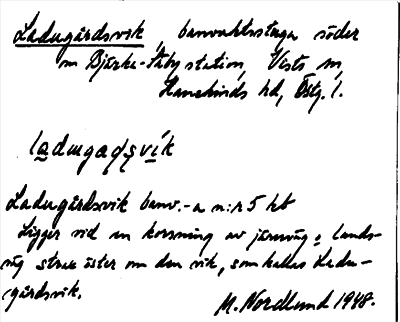 Ladugårdsvik, banvaktsstuga söder
m Bjärka-Säby station, Vists sn,
Hanekinds hd, Östg. l.
ladugaḍṣvik
Ladugårdsvik banv.-a n:r 5 hb
Ligger vid en korsning av järnväg o lands-
väg strax öster om den vik, som kallas Ladu-
gårdsvik.
M. Nordlund 1948.